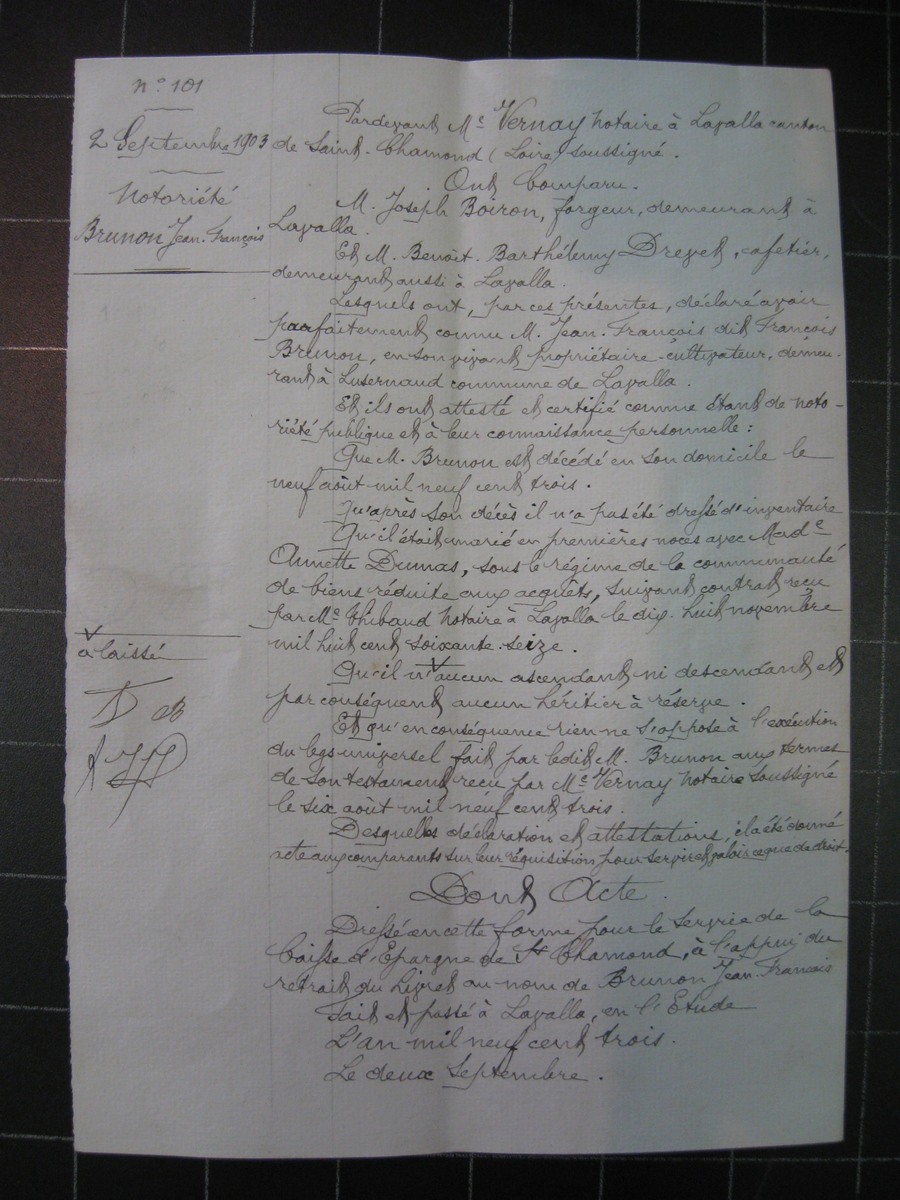 n° 101
2 Septembre 1903
Notoriété
Brunon Jean-François
Pardevant Me Vernay notaire à Lavalla canton
de Saint-Chamond (Loire) soussigné.
Ont Comparu.
M. Joseph Boiron, forgeur, demeurant à
Lavalla.
Et M. Benoît-Barthélemy Drevet, cafetier,
demeurant aussi à Lavalla.
Lesquels ont, par ces présentes, déclaré avoir
parfaitement connu M. Jean-François dit François
Brunon, en son vivant propriétaire-cultivateur, demeu-
rant à Lusernaud commune de Lavalla.
Et ils ont attesté et certifié comme étant de noto-
riété publique et à leur connaissance personnelle:
Que M. Brunon est décédé en son domicile le
neuf août mil neuf cent trois.
Qu'après son décès il n'a pas été dressé d'inventaire
Qu'il était marié en premières noces avec Made
Annette Dumas, sous le régime de la communauté
de biens réduite aux acquêts, suivant contrat reçu
par Me Thibaud notaire à Lavalla le dix-huit novembre
mil huit cent soixante-seize.
Qu'il n'aucun ascendant ni descendant et
par conséquent aucun héritier à réserve.
Et qu'en conséquence rien ne s'oppose à l'exécution
du legs universel fait par ledit M. Brunon aux termes
de son testament reçu par Me Vernay notaire soussigné
le six août mil neuf cent trois.
Desquelles déclaration et attestations, il a été donné
acte aux comparants sur leur réquisition pour servir et valoir ce que de droit.
Dont Acte.
Dressé en cette forme pour le service de la
Caisse d'Epargne de St Chamond, à l'appui du
retrait du Livret au nom de Brunon Jean-François
Fait et passé à Lavalla, en l'Etude
L'an mil neuf cent trois.
Le deux Septembre.
a laissé